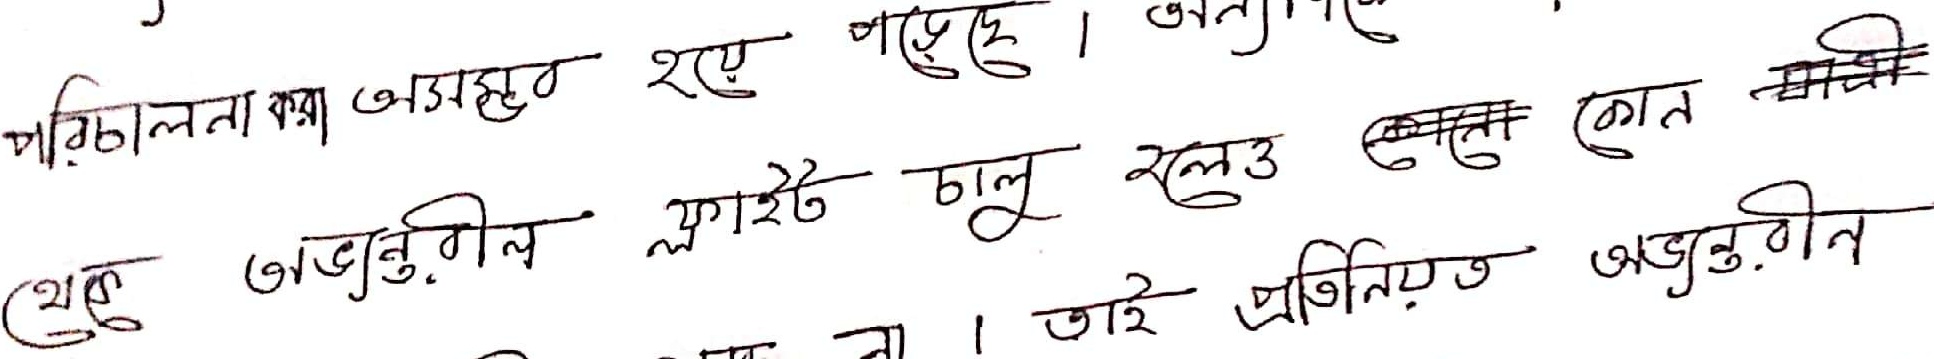 পরিচালনা করা অসম্ভব হয়ে পড়েছে।
থেকে অভ্যন্তুরীন ফ্লাইট চালু হলেও কোন
না। তাই প্রতিনিয়ত অভ্যন্তুরীন